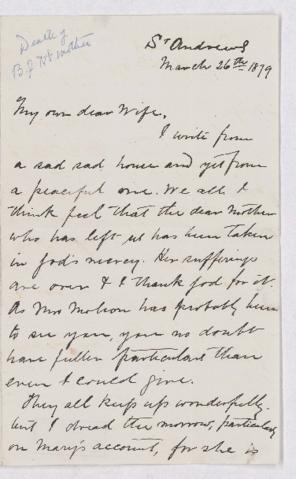 Death of
B.J.'s mother
St Andrews
March 26th 1879
My own dear Wife,
I write from
a sad sad house and yet from
a peaceful one. We all I
think feel that the dear Mother
who has left us has been taken
in God's mercy. Her sufferings
are over & I thank God for it.
As Mrs has probably been
to see you, you no doubt
have fuller particulars than
even I could give.
They all keep up wonderfully.
but I dread the morrow, particularly
on Mary's account, for she is